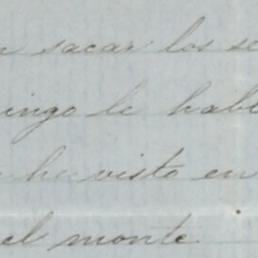 sacar los se
ingo le habl
he visto en
el monte